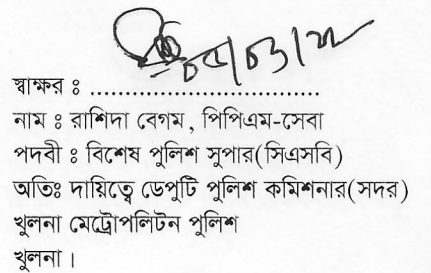 স্বাক্ষর ঃ ....................................
নাম ঃ রাশিদা বেগম, পিপিএম-সেবা
পদবী ঃ বিশেষ পুলিশ সুপার(সিএসবি)
অতিঃ দায়িত্বে ডেপুটি পুলিশ কমিশনার(সদর)
খুলনা মেট্রোপলিটন পুলিশ
খুলনা।